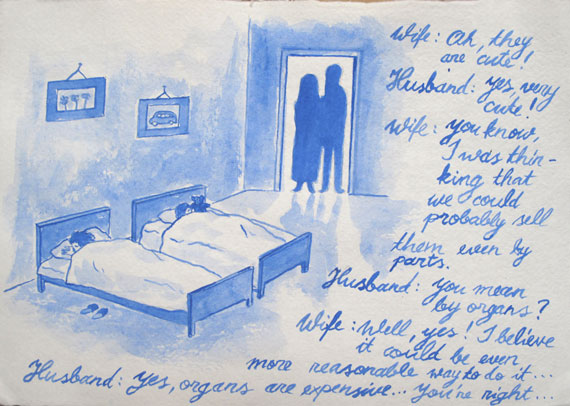 Wife: Ah, they
are cute!
Husband: yes, very
cute!
Wife: you know,
I was thin-
king that
we could
probably sell
them even by
parts.
Husband: you mean
by organs?
Wife: Well, yes! I believe
it could be even
more reasonable way to do it...
Husband: yes, organs are expensive... You're right...